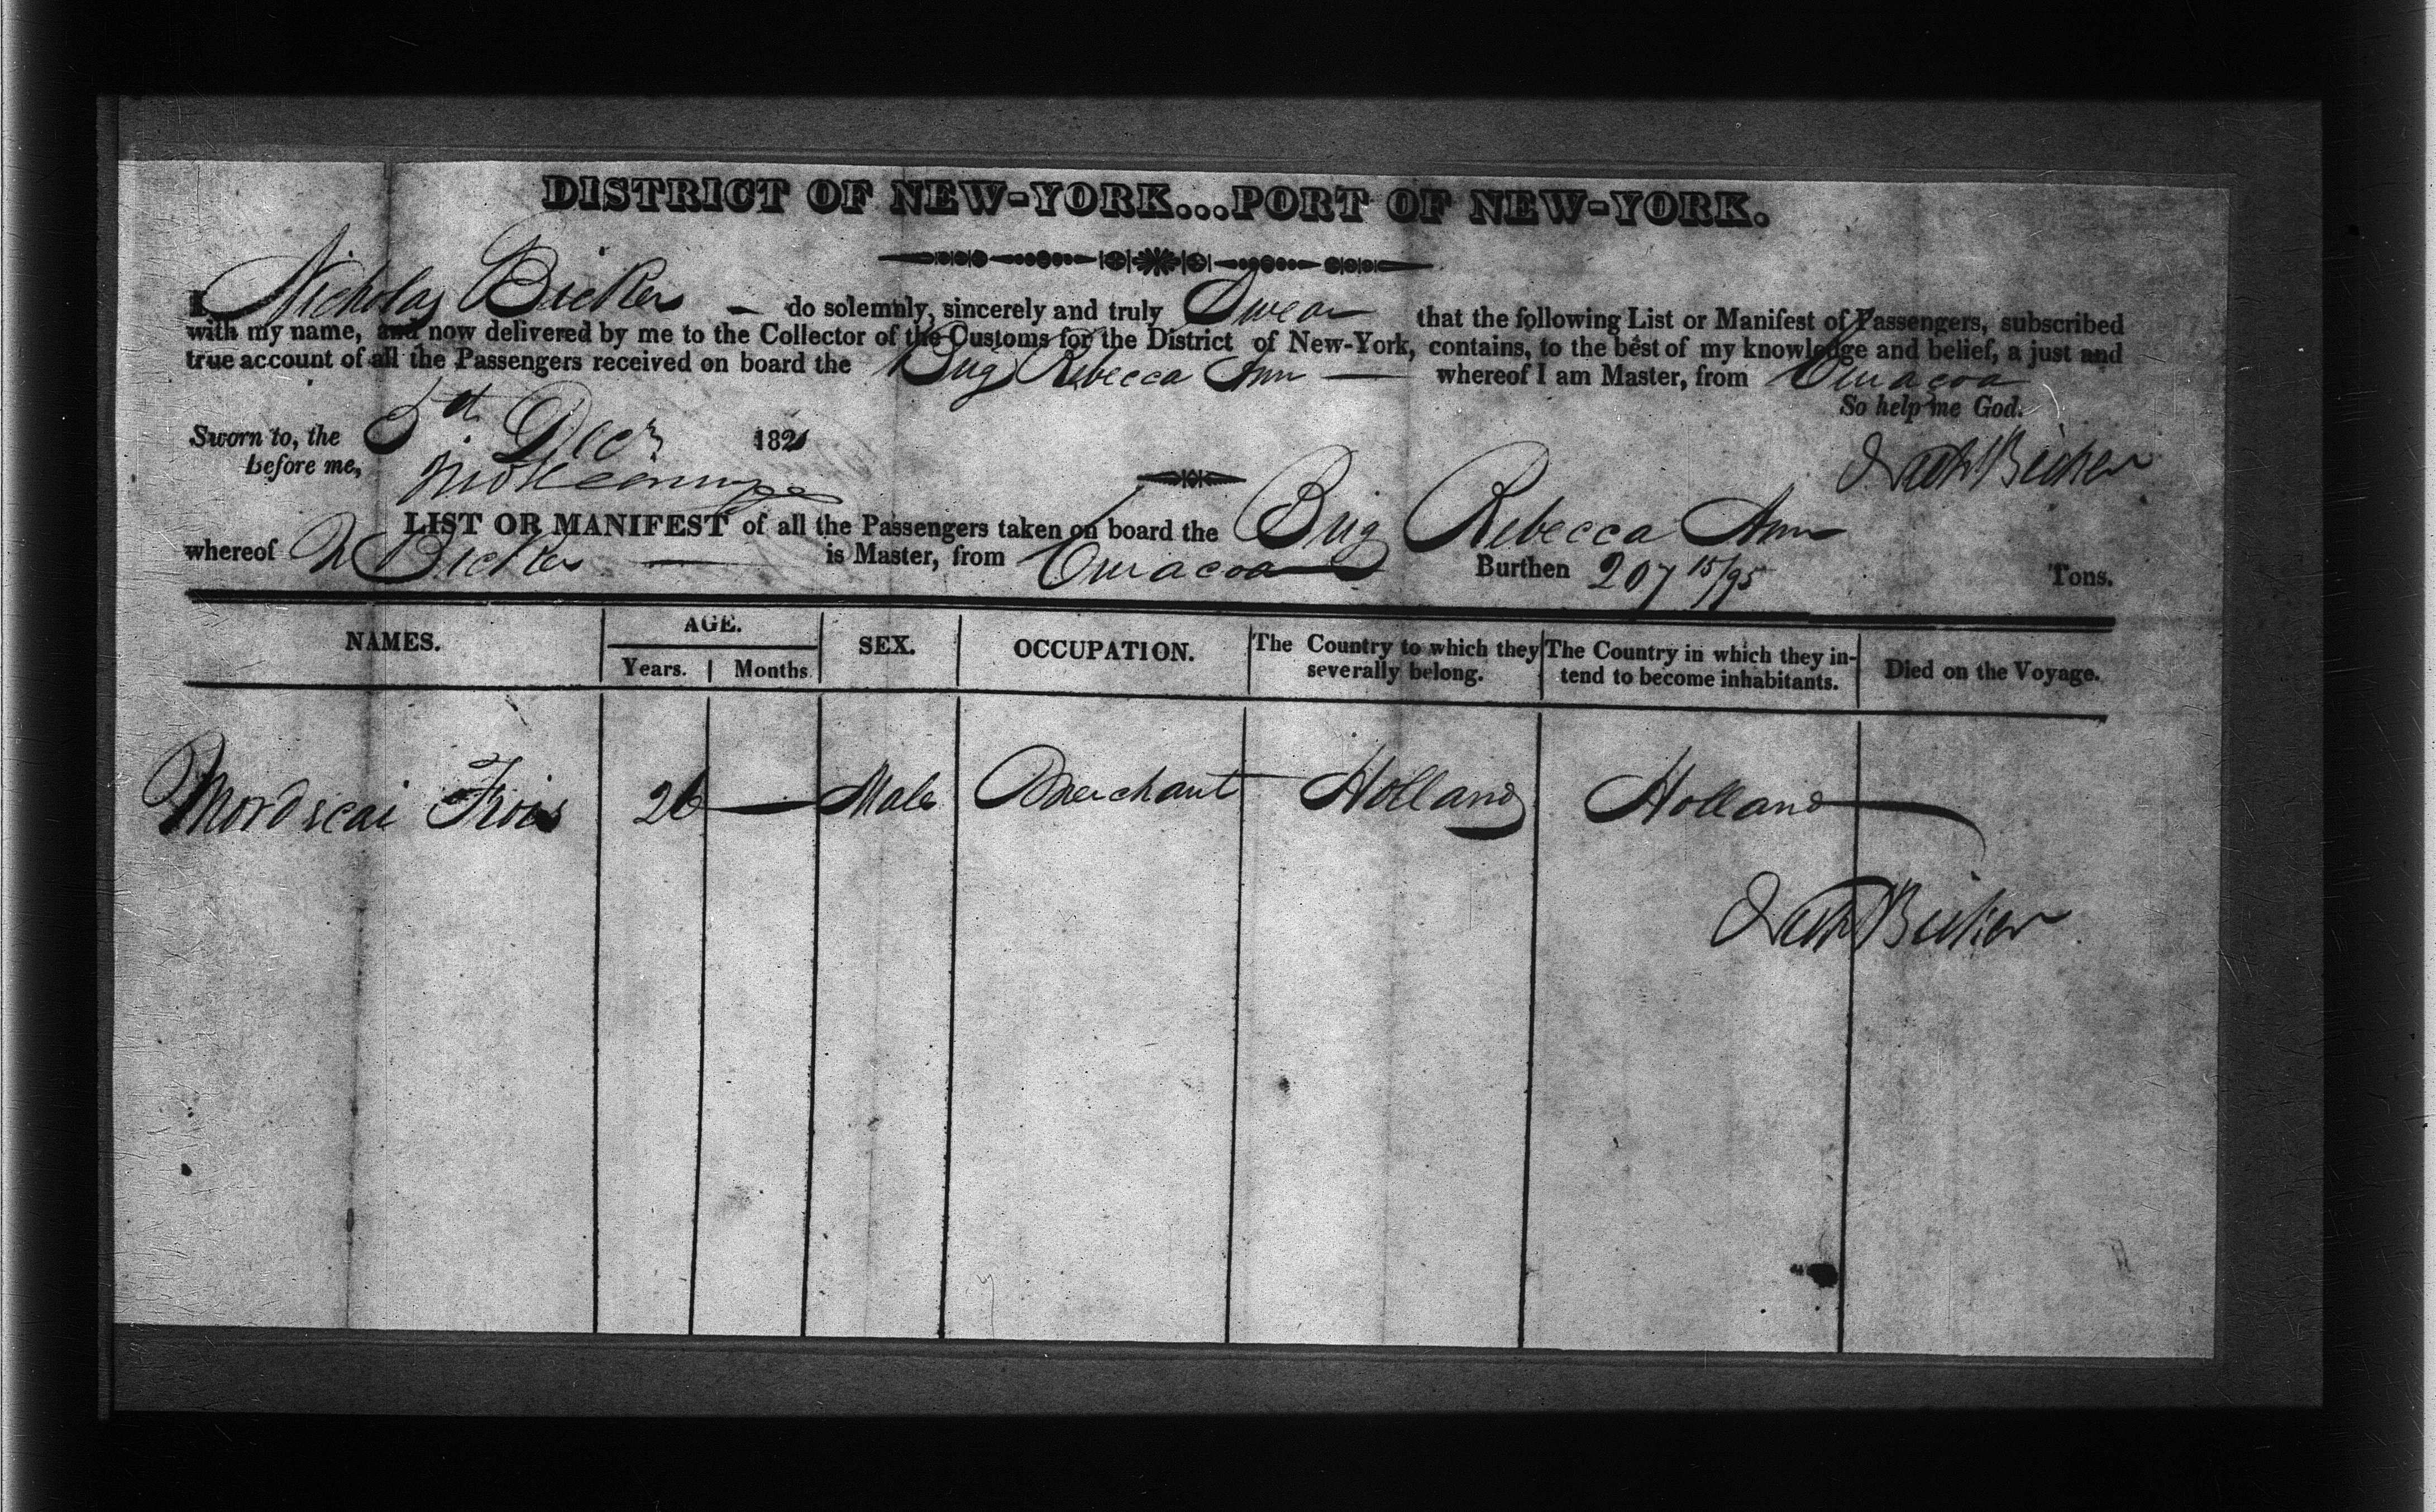 DISTRICT OF NEW-YORK...PORT OF NEW-YORK.
I Nicholas Bicker — do solemnly, sincerely and truly Swear that the following List or Manifest of Passengers, subscribed
with my name, and now delivered by me to the Collector of the Customs for the District of New-York, contains, to the best of my knowledge and belief, a just and
true account of all the Passengers received on board the Brig Rebecca Ann — whereof I am Master, from Curacoa
So help me God.
Sworn to, the 5th Decr 1821
before me,
Bicker
LIST OR MANIFEST of all the Passengers taken on board the Brig Rebecca Ann
whereof N Bicker — is Master, from Curacoa Burthen 207 15/95 Tons.
NAMES. AGE. SEX. OCCUPATION. The Country to which they severally belong. The Country in which they in-tend to become inhabitants. Died on the Voyage.
Years. Months.
Mordecai Frois 26 — Male Merchant Holland Holland —
Bicker